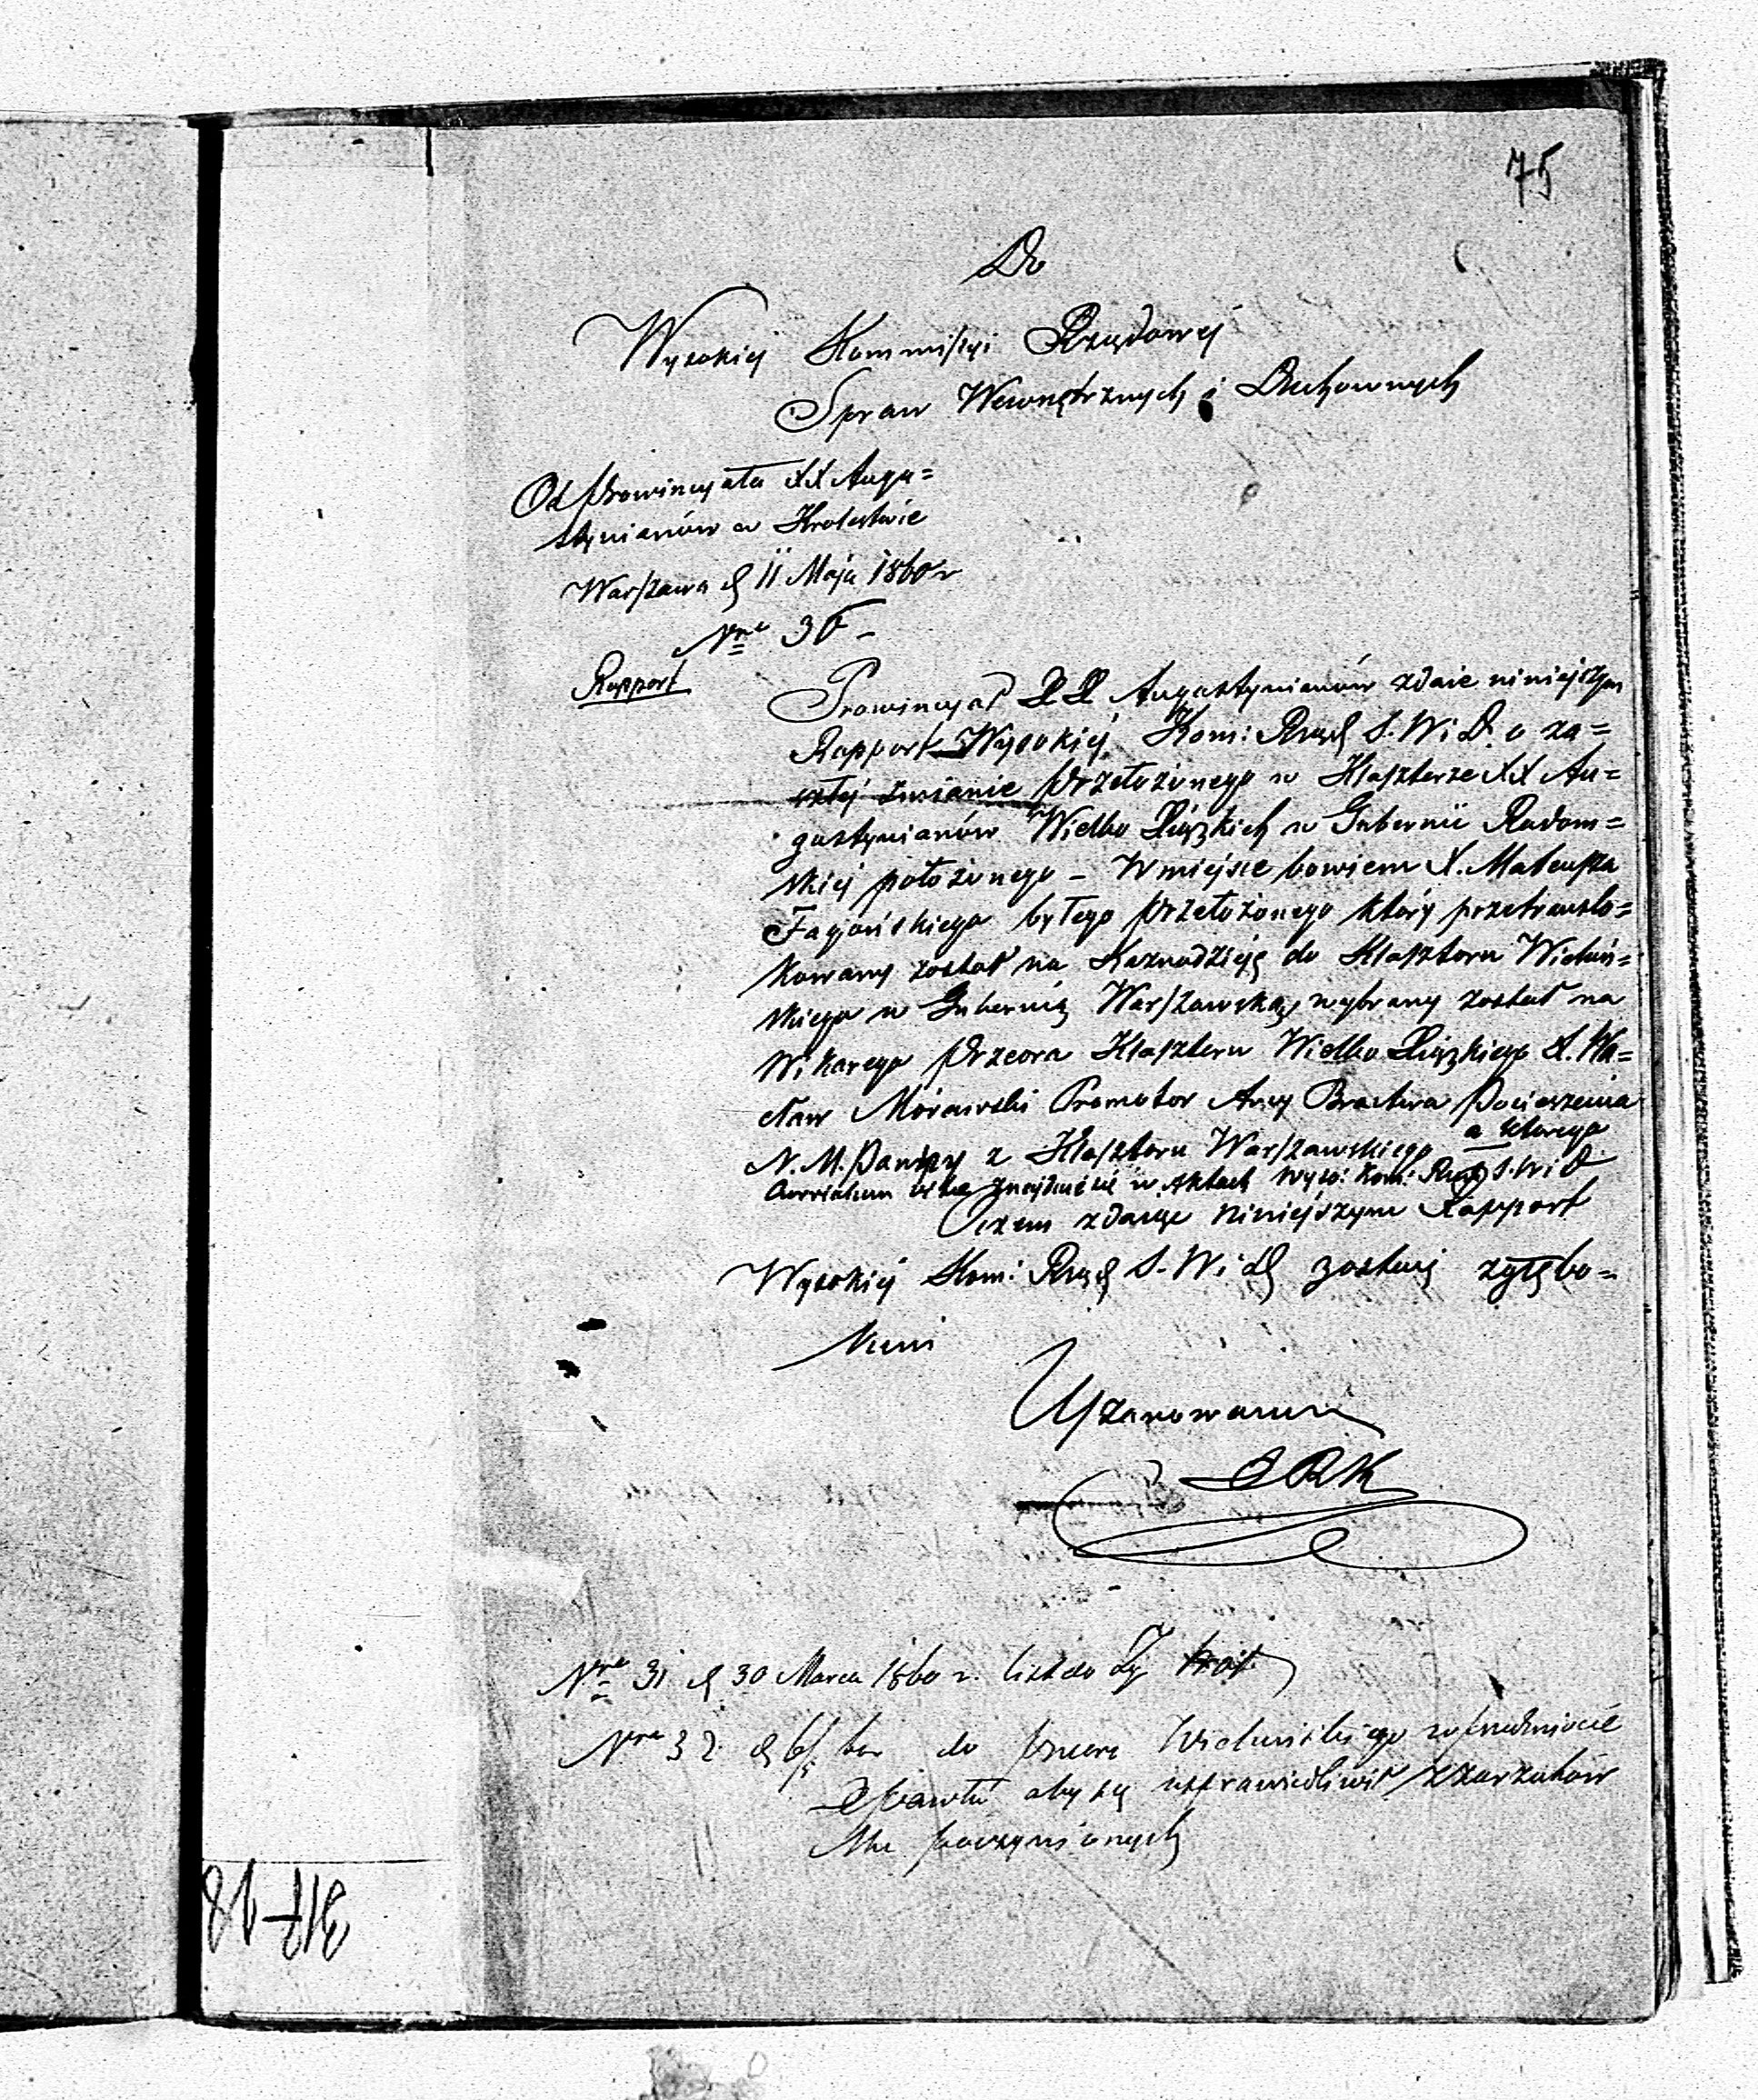 75
Do
Wysokiej Kommissyi Rządowej
Spraw Wewnętrznych i Duchownych
Od Prowincyała XX Augu=
stynianów w Krolestwie
Warszawa d 11 Maja 1860 r
Nro 36 -
Rapport
Prowincyał XX Augustynianów zdaie niniejszym
Rapport Wysokiej Kom: Rząd S. W i D. o za=
szłéj zmianie Przełożonego w Klasztorze XX Au=
gustynianów Wielko Xiązkich w Gubernii Radom=
skiej położonego - W miejsce bowiem X. Mateusza
byłego Przełożonego który przetranslo=
kowany został na Kaznodzieję do Klasztoru Wieluń=
skiego w Gubernią Warszawską, wybrany został na
Wikarego Przeora Klasztoru Wielko Xiązkiego X. Wa=
cław Morawski Promotor Arcy Bractwa Pocieszenia
N. M. Panny z Klasztoru Warszawskiego a którego
Curriculum vitae znajduie się w Aktach Wyso: Kom: Rząd S. W i D
O czem zdaiąc niniejszym Rapport
Wysokiej Kom: Rząd S. W i D zostaię zgłębo=
kiem
Uszanowaniem
Nro 31 d 30 Marca 1860 r. list do
Nro 32 d do Przeora Wieluńskiego
aby się usprawiedliwił z zarzutów
Mu poczynionych
317-18